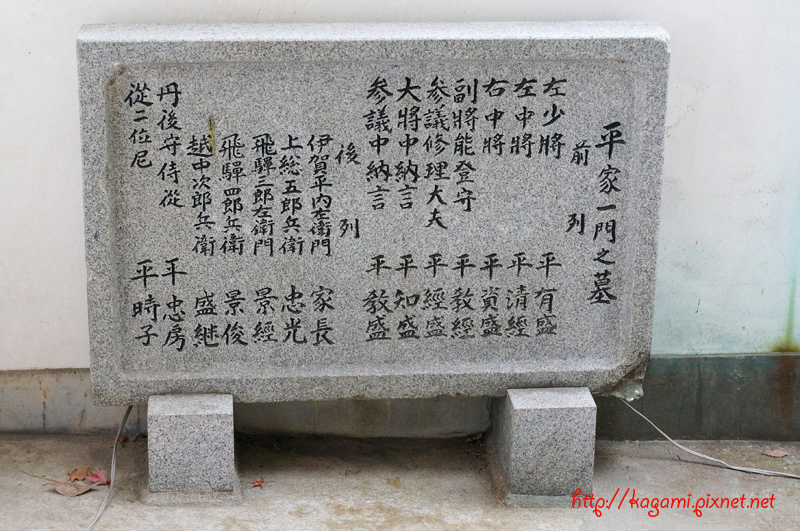 平家一門之墓
前列
左少將 平有盛
左中將 平清經
右中將 平資盛
副將能登守 平教經
参議修理大夫 平經盛
大將中納言 平知盛
参議中納言 平教盛
後列
伊賀平内左衛門 家長
上総五郎兵衛 忠光
飛驒三郎左衛門 景經
飛驒四郎兵衛 景俊
越中次郎兵衛 盛継
丹後守侍從 平忠房
從二位尼 平時子
http://kagami.pixnet.net